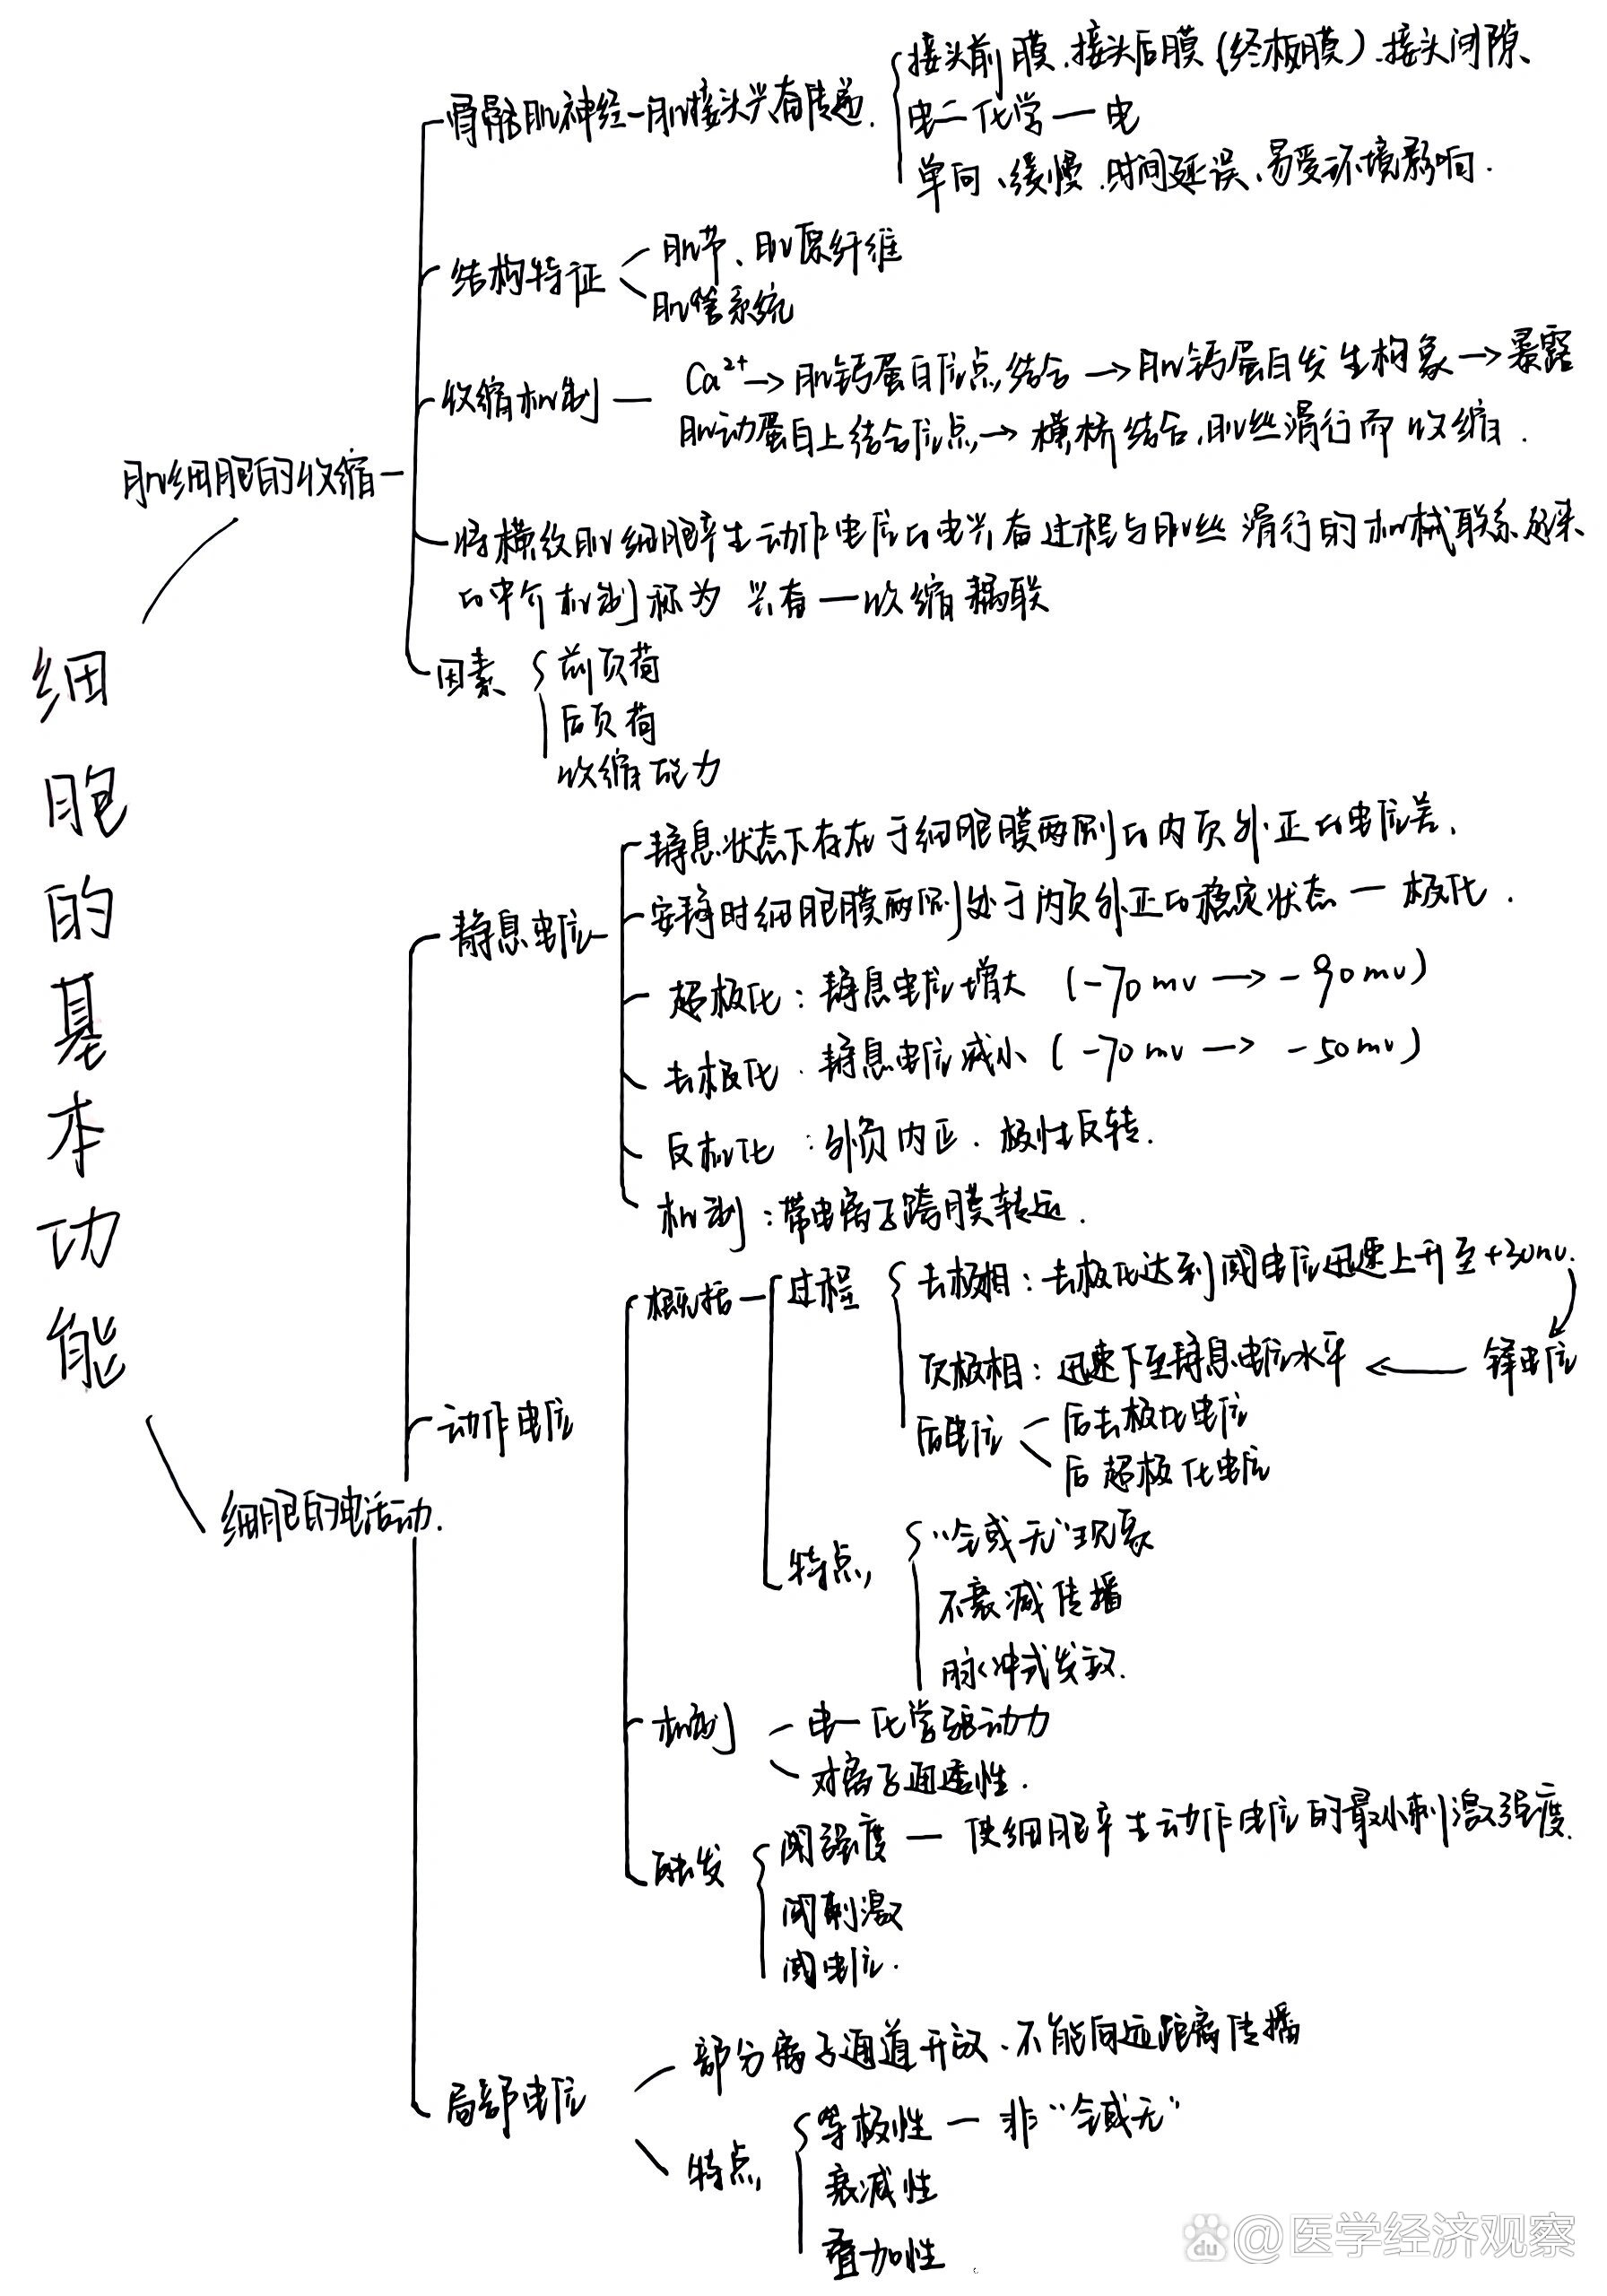 细胞的基本功能
肌细胞的收缩
骨骼肌神经-肌接头兴奋传递.
接头前膜、接头后膜(终板膜)、接头间隙、
电二化学一电
单向、缓慢、时间延误、易受环境影响.
结构特征
肌节、肌原纤维
肌管系统
收缩机制
Ca²⁺→肌钙蛋白位点结合→肌钙蛋白发生构象→暴露
肌动蛋白上结合位点→横桥结合,肌丝滑行而收缩.
将横纹肌细胞产生动作电位的电兴奋过程与肌丝滑行的机械联系起来
的中介机制称为 兴奋一收缩耦联
因素
前负荷
后负荷
收缩能力
细胞的电活动.
静息电位
静息状态下存在于细胞膜两侧的内负外正的电位差.
安静时细胞膜两侧处于内负外正的稳定状态一极化.
超极化:静息电位增大 (-70mv→-90mv)
去极化:静息电位减小(-70mv→-50mv)
反极化:外负内正.极性反转.
机制:带电离子跨膜转运.
动作电位
概括
过程
去极相:去极化达到阈电位迅速上升至+30mv.
复极相:迅速下至静息电位水平 ← 锋电位
后电位
后去极化电位
后超极化电位
特点
"全或无"现象
不衰减传播
脉冲式发放.
机制
电一化学驱动力
对离子通透性.
触发
阈强度一使细胞产生动作电位的最小刺激强度.
阈刺激
阈电位.
局部电位
部分离子通道开放.不能向远距离传播
特点
等极性一非"全或无"
衰减性
叠加性
@医学经济观察